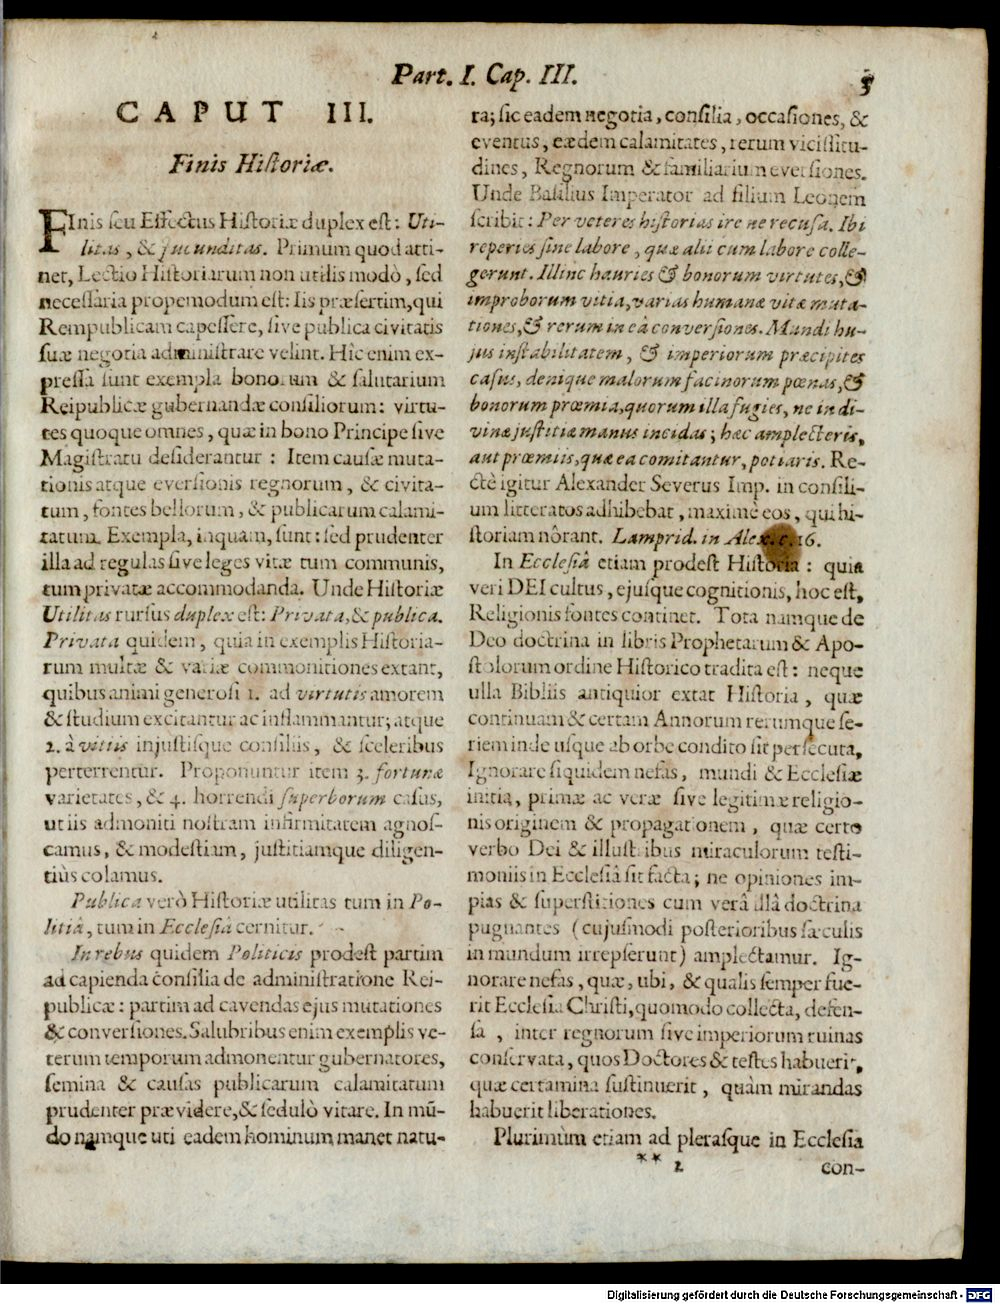 Part. I. Cap. III.
3
CAPUT III.
Finis Historiæ.
FInis seu Effectus Historiæ duplex est: Uti-
litas, & jucunditas. Primum quod atti-
net, Lectio Historiarum non utilis modò, sed
necessaria propemodum est: Iis præsertim, qui
Rempublicam capessere, sive publica civitatis
suæ negotia administrare velint. Hîc enim ex-
pressa sunt exempla bonorum & salutarium
Reipublicæ gubernandæ consiliorum: virtu-
tes quoque omnes, quæ in bono Principe sive
Magistratu desiderantur: Item causæ muta-
tionis atque eversionis regnorum, & civita-
tum, fontes bellorum, & publicarum calami-
tatum. Exempla, inquam, sunt: sed prudenter
illa ad regulas sive leges vitæ tum communis,
tum privatæ accommodanda. Unde Historiæ
Utilitas rursus duplex est: Privata, & publica.
Privata quidem, quia in exemplis Historia-
rum multæ & variæ commonitiones extant,
quibus animi generosi 1. ad virtutis amorem
& studium excitantur ac inflammantur; atque
2. à vitiis injustisque consiliis, & sceleribus
perterrentur. Proponuntur item 3. fortunæ
varietates, & 4. horrendi superborum casus,
ut iis admoniti nostram infirmitatem agnos-
camus, & modestiam, justitiamque diligen-
tiùs colamus.
Publica verò Historiæ utilitas tum in Po-
litiâ, tum in Ecclesiâ cernitur.
In rebus quidem Politicis prodest partim
ad capienda consilia de administratione Rei-
publicæ: partim ad cavendas ejus mutationes
& conversiones. Salubribus enim exemplis ve-
terum temporum admonentur gubernatores,
semina & causas publicarum calamitatum
prudenter prævidere, & sedulò vitare. In mũ-
do namque uti eadem hominum manet natu-
ra; sic eadem negotia, consilia, occasiones, &
eventus, eædem calamitates, rerum vicissitu-
dines, Regnorum & familiarium eversiones.
Unde Basilius Imperator ad filium Leonem
scribit: Per veteres historias ire ne recusa. Ibi
reperies sine labore, quæ alii cum labore colle-
gerunt. Illinc hauries & bonorum virtutes, &
improborum vitia, varias humanæ vitæ muta-
tiones, & rerum in eâ conversiones. Mundi hu-
jus instabilitatem, & imperiorum præcipites
casus, denique malorum facinorum pœnas, &
bonorum præmia, quorum illa fugies, ne in di-
vinæ justitiæ manus incidas; hæc amplecteris,
aut præmiis, quæ ea comitantur, potiaris. Re-
ctè igitur Alexander Severus Imp. in consili-
um litteratos adhibebat, maximè eos, qui hi-
storiam nôrant. Lamprid. in Alex. c. 16.
In Ecclesiâ etiam prodest Historia: quia
veri DEI cultus, ejusque cognitionis, hoc est,
Religionis fontes continet. Tota namque de
Deo doctrina in libris Prophetarum & Apo-
stolorum ordine Historico tradita est: neque
ulla Bibliis antiquior extat Historia, quæ
continuam & certam Annorum rerumque se-
riem inde usque ab orbe condito sit persecuta,
Ignorare siquidem nefas, mundi & Ecclesiæ
initia, primæ ac veræ sive legitimæ religio-
nis originem & propagationem, quæ certo
verbo Dei & illustribus miraculorum testi-
moniis in Ecclesiâ sit facta; ne opiniones im-
pias & superstitiones cum verâ illâ doctrina
pugnantes (cujusmodi posterioribus sæculis
in mundum irrepserunt) amplectamur. Ig-
norare nefas, quæ, ubi, & qualis semper fue-
rit Ecclesia Christi, quomodo collecta, defen-
sa, inter regnorum sive imperiorum ruinas
conservata, quos Doctores & testes habuerit,
quæ certamina sustinuerit, quàm mirandas
habuerit liberationes.
Plurimùm etiam ad plerasque in Ecclesia
** 2
con-
Digitalisierung gefördert durch die Deutsche Forschungsgemeinschaft - DFG